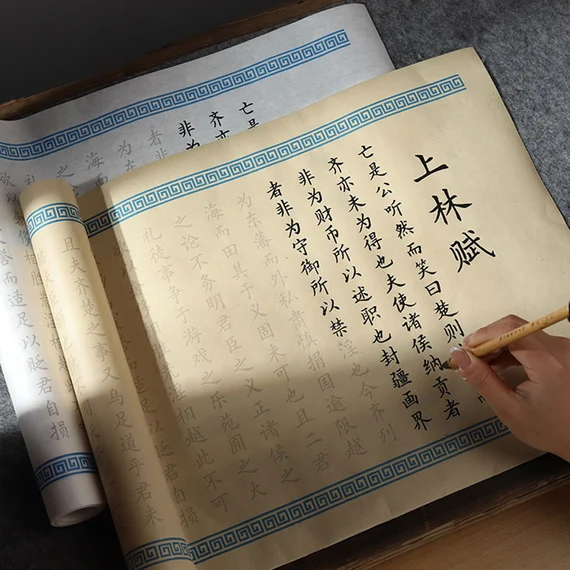 上林赋
亡是公听然而笑曰楚则
齐亦未为得也夫使诸侯纳贡者
非为财币所以述职也封疆画界
者非为守御所以禁淫也今齐列
为东藩而外私肃慎捐国逾限越
海而田其于义固未可也且二君
之论不务明君臣之义正诸侯之
礼徒事争于游戏之乐苑囿之大
相越此不可
贬君自损
且夫齐楚之事又乌足道乎君未
亡是
齐亦
非为
者非
为东
海而
之
誉而适足以贬君自损